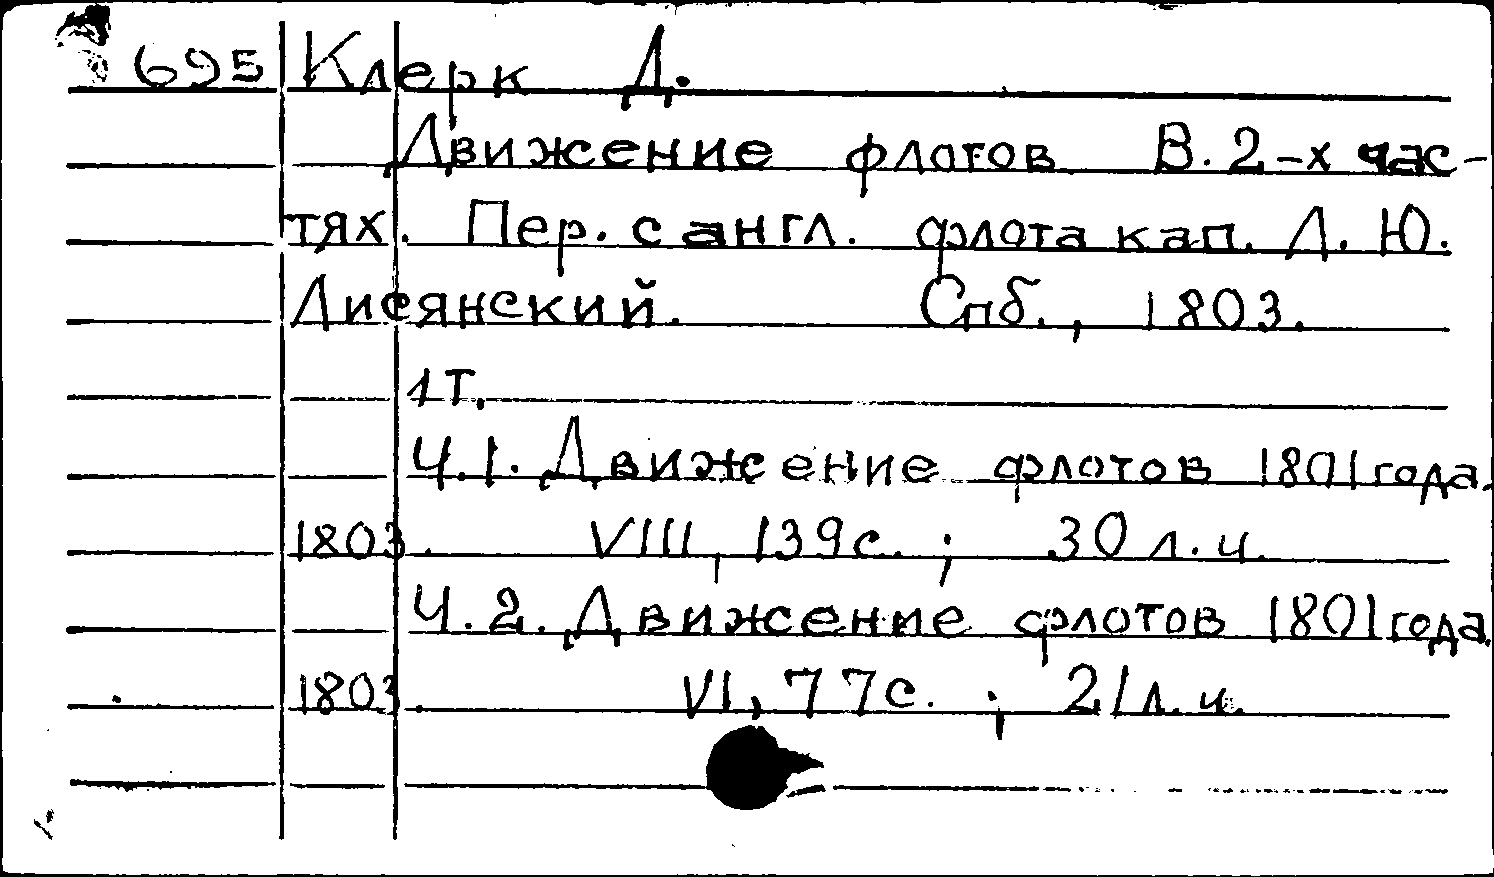 695 Клерк Д.
Движение флотов В. 2-х час-
тях. Пер. с англ. флота кап. Л. Ю.
Лисянский. Спб., 1803.
1 т.
Ч. 1. Движение флотов 1801 года.
1803. VIII, 139 с. ; 30 л. ч.
Ч. 2. Движение флотов 1801 года.
1803. VI, 77 с. ; 21 л. ч.